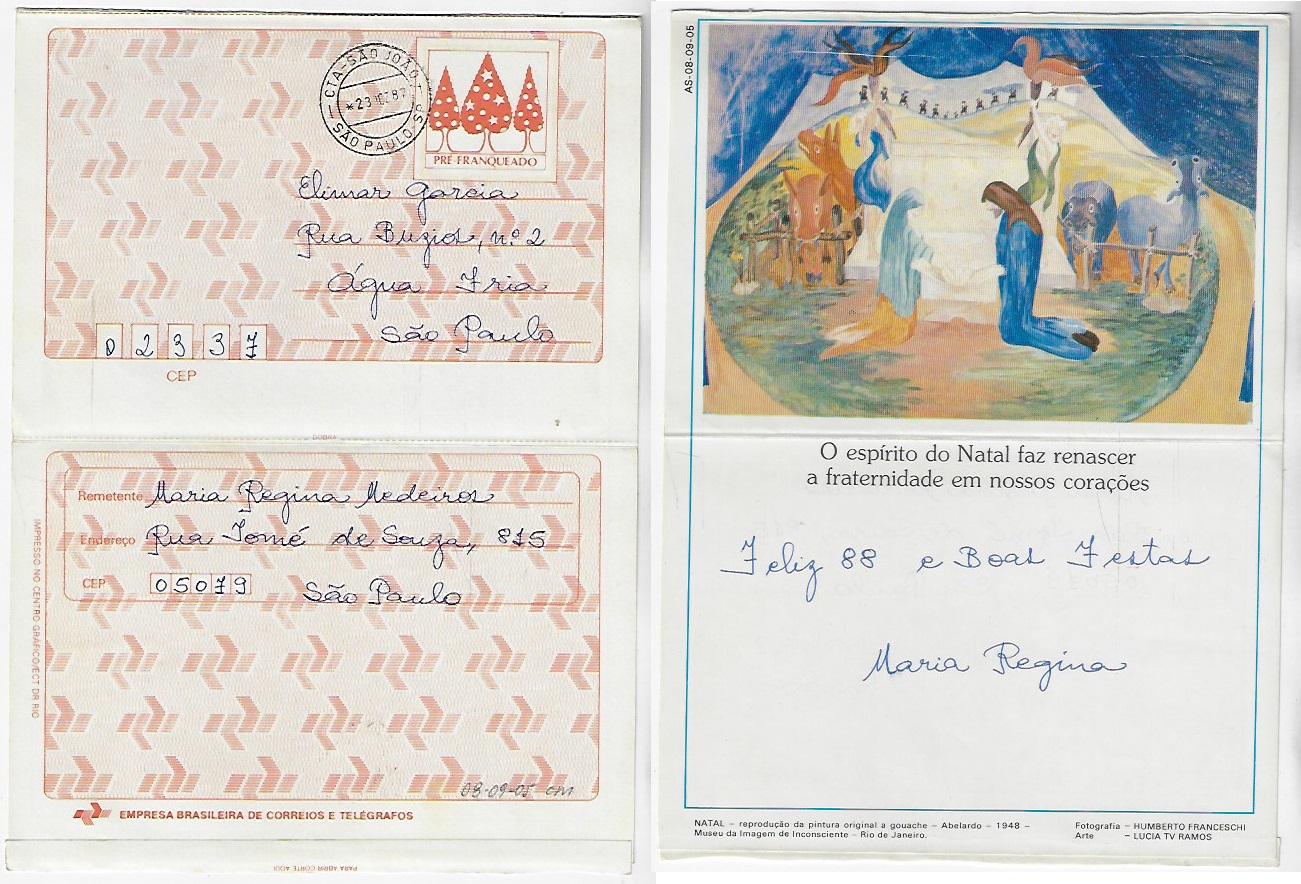 CTA-SÃO JOÃO
*23 DEZ 87
SÃO PAULO-SP
PRÉ-FRANQUEADO
Elimar Garcia
Rua Buzios, nº 2
Água Fria
São Paulo
02337
CEP
DOBRA
Remetente Maria Regina Medeiros
Endereço Rua Tomé de Souza, 815
CEP 05079 São Paulo
IMPRESSO NO CENTRO GRÁFICO/ECT DR RIO
08-09-05 cm
EMPRESA BRASILEIRA DE CORREIOS E TELÉGRAFOS
PARA ABRIR CORTE AQUI
AS-08-09-05
O espírito do Natal faz renascer
a fraternidade em nossos corações
Feliz 88 e Boas Festas
Maria Regina
NATAL – reprodução da pintura original a gouache – Abelardo – 1948 –
Museu da Imagem de Inconsciente – Rio de Janeiro.
Fotografia – HUMBERTO FRANCESCHI
Arte – LUCIA TV RAMOS